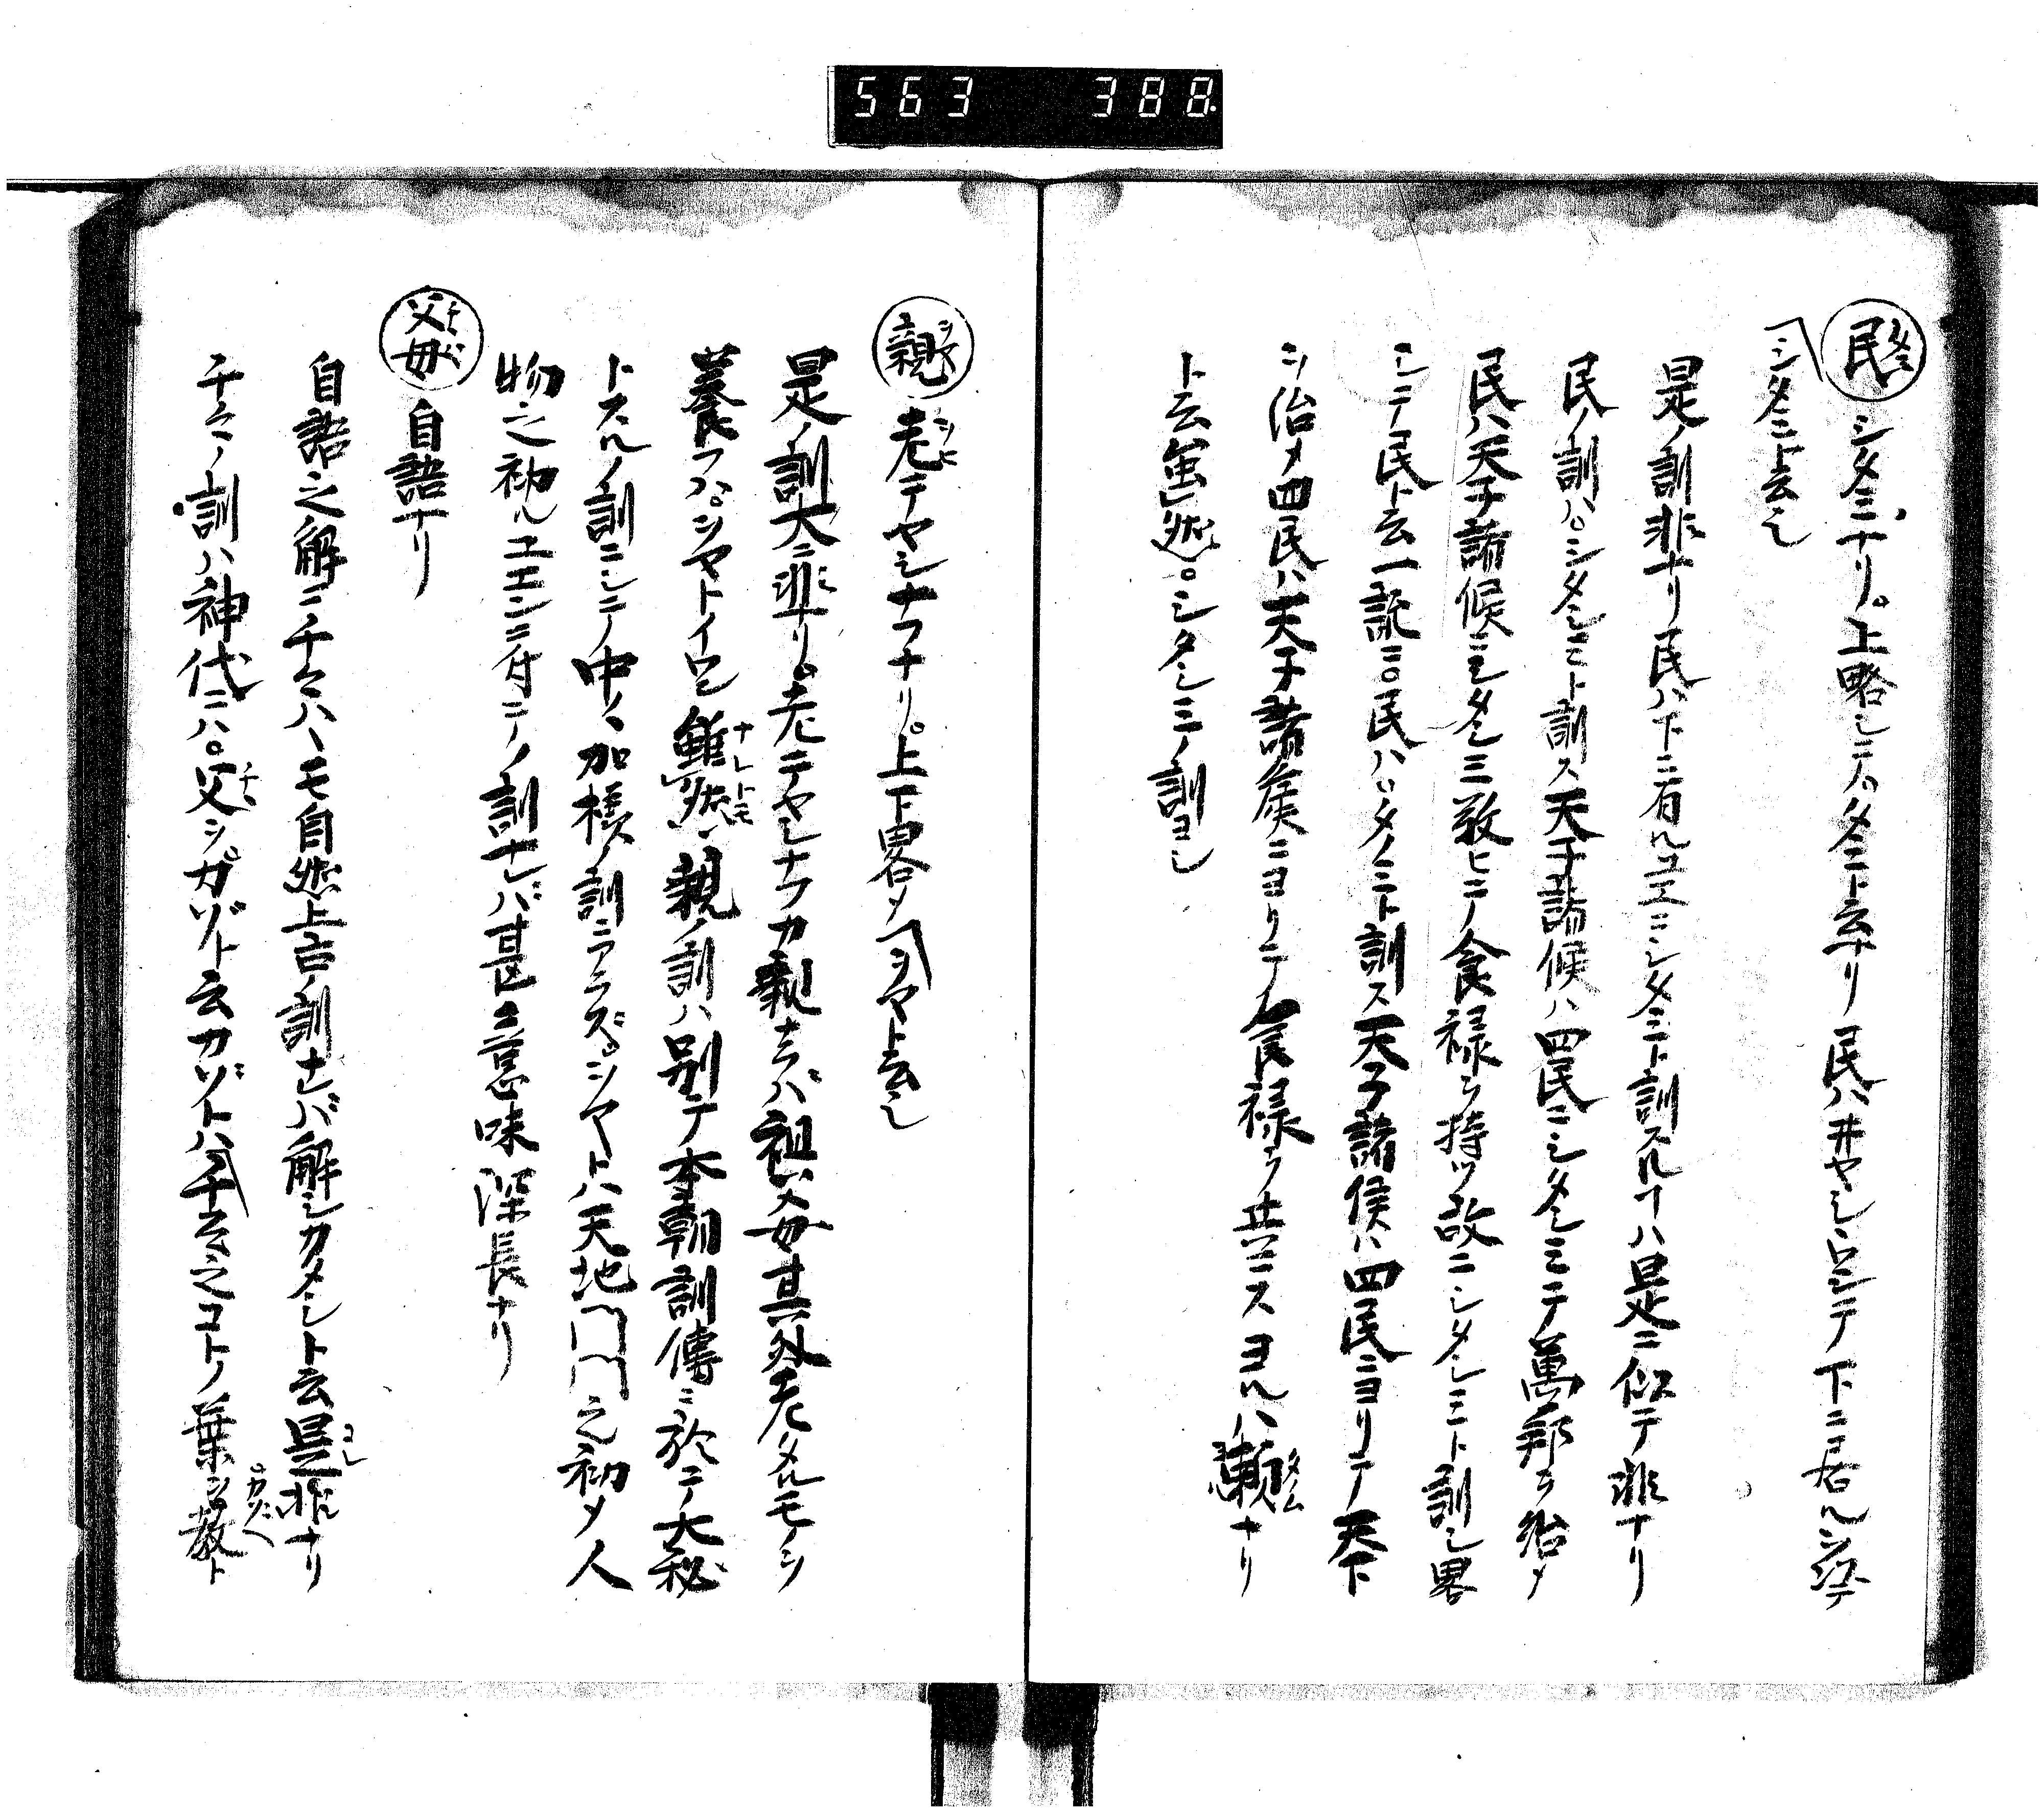 563 388
民 シタミナリ。上畧シテタミト云ナリ民ハ井ヤシロシテ下ニ居ル
シタミト云
是ノ訓非ナリ民ハ下ニ有ルユエニシタミト訓スルハ是ニ似テ非ナリ
民ノ訓ハ。シタシミト訓ス天子諸候ハ四民ニシタシミテ萬邦ヲ治メ
民ハ天子諸候ニシタシミ敬ヒテ食禄ヲ持ツ故ニシタシミト訓シ畧
シテ民ト云一説ニ。民ハタノミト訓ス天子諸侯ハ四民ニヨリテ天下
シ治メ四民ハ天子諸侯ニヨリテ食禄ヲ共ニスヨルハ頼ナリ
ト云虽然。シタシミノ訓ヨシ
親 老テヤシナフナリ。上下畧メヲヤト云
是ノ訓大ニ非ナリ。老テヤシナフカ親ナラバ祖父母其外老タルモノシ
養フハ。ヲヤトイロ 雖然親ノ訓ハ別テ本朝訓傳ニ於テ大秘
トスルノ訓ニシテノ中ノ加様ノ訓ニアラズ。ヲヤトハ天地開闢之初メ人
物之初ルユエンニ付テノ訓ナレバ甚意味深長ナリ
父母 自語ナリ
自語之解ニ千々ハヽモ自然上古ノ訓ナレバ解シカタシト云是非ナリ
千々ノ訓ハ神代ニハ。父シ。カゾト云カゾトハ千云之コトノ葉シ教ト